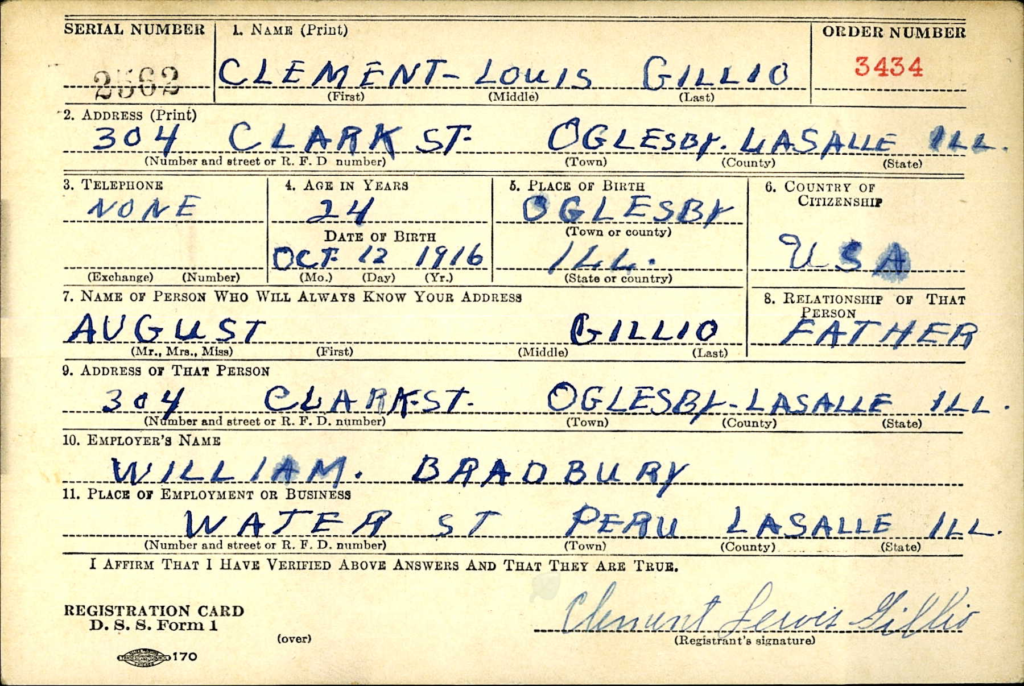 SERIAL NUMBER 1. NAME (Print) ORDER NUMBER
2562 CLEMENT- LOUIS GILLIO 3434
(First) (Middle) (Last)
2. ADDRESS (Print)
304 CLARK ST. OGLESBY. LASALLE ILL.
(Number and street or R. F. D number) (Town) (County) (State)
3. TELEPHONE 4. AGE IN YEARS 5. PLACE OF BIRTH 6. COUNTRY OF CITIZENSHIP
NONE 24 OGLESBY
DATE OF BIRTH (Town or county)
OCT. 12 1916 ILL. USA
(Exchange) (Number) (Mo.) (Day) (Yr.) (State or country)
7. NAME OF PERSON WHO WILL ALWAYS KNOW YOUR ADDRESS 8. RELATIONSHIP OF THAT PERSON
AUGUST GILLIO FATHER
(Mr., Mrs., Miss) (First) (Middle) (Last)
9. ADDRESS OF THAT PERSON
304 CLARK-ST. OGLESBY-LASALLE ILL.
(Number and street or R. F. D. number) (Town) (County) (State)
10. EMPLOYER'S NAME
WILLIAM. BRADBURY
11. PLACE OF EMPLOYMENT OR BUSINESS
WATER ST PERU LASALLE ILL.
(Number and street or R. F. D. number) (Town) (County) (State)
I AFFIRM THAT I HAVE VERIFIED ABOVE ANSWERS AND THAT THEY ARE TRUE.
REGISTRATION CARD
D. S. S. Form 1
(over)
Clement Lewis Gillio
(Registrant's signature)
170